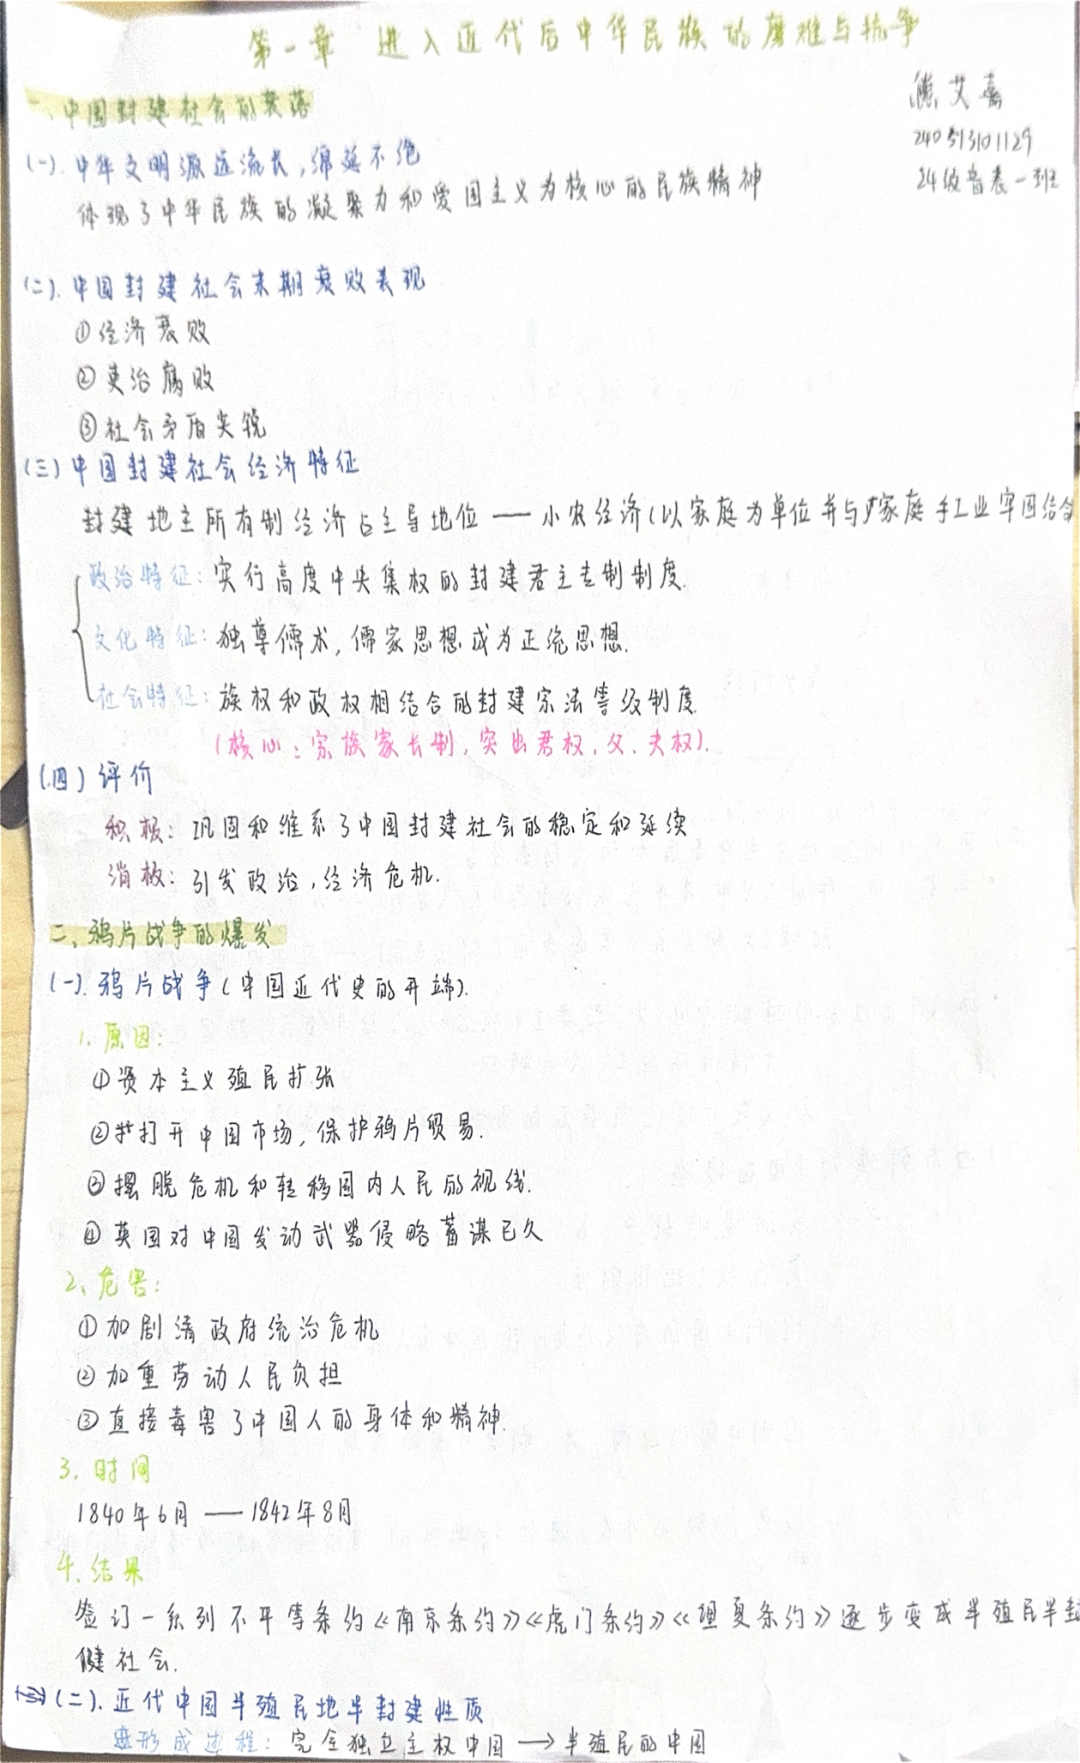 第一章 进入近代后中华民族的磨难与抗争
熊艾嘉
240513101129
24级音表一班
一、中国封建社会的衰落
(一).中华文明源远流长,绵延不绝
体现了中华民族的凝聚力和爱国主义为核心的民族精神
(二).中国封建社会末期衰败表现
①经济衰败
②吏治腐败
③社会矛盾尖锐
(三)中国封建社会经济特征
封建地主所有制经济占主导地位——小农经济(以家庭为单位并与家庭手工业牢固结合
政治特征:实行高度中央集权的封建君主专制制度.
文化特征:独尊儒术,儒家思想成为正统思想.
社会特征:族权和政权相结合的封建宗法等级制度.
(核心:宗族家长制,突出君权,父.夫权).
(四)评价
积极:巩固和维系了中国封建社会的稳定和延续
消极:引发政治,经济危机.
二、鸦片战争的爆发
(一).鸦片战争(中国近代史的开端).
1.原因:
①资本主义殖民扩张
②打开中国市场,保护鸦片贸易.
③摆脱危机和转移国内人民的视线.
④英国对中国发动武器侵略蓄谋已久
2、危害:
①加剧清政府统治危机
②加重劳动人民负担
③直接毒害了中国人的身体和精神.
3.时间
1840年6月——1842年8月
4.结果
签订一系列不平等条约《南京条约》《虎门条约》《望厦条约》逐步变成半殖民半封
健社会.
(二).近代中国半殖民地半封建性质
形成过程:完全独立主权中国→半殖民的中国